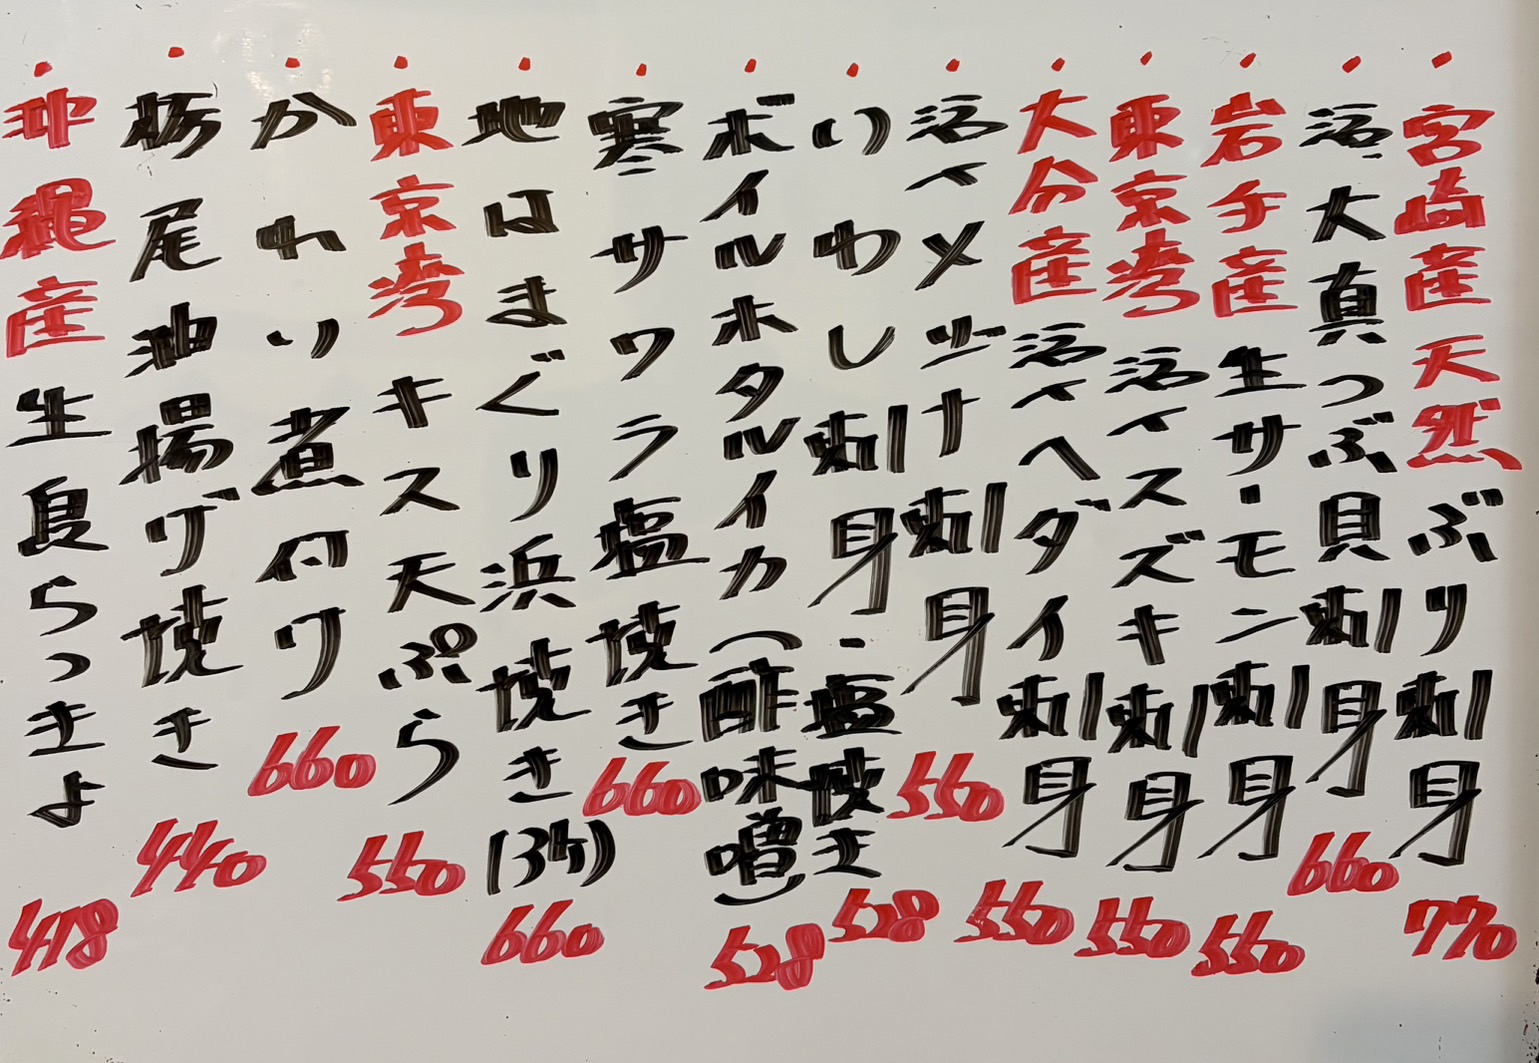 ・宮崎産天然ぶり刺身 770
・活大真つぶ貝刺身 660
・岩手産生サーモン刺身 550
・東京湾活〆スズキ刺身 550
・大分産活〆ヘダイ刺身 550
・活〆メジナ刺身 550
・いわし刺身・塩焼き 528
・ボイルホタルイカ(酢味噌) 528
・寒サワラ塩焼き 660
・地はまぐり浜焼き(3ケ) 660
・東京湾キス天ぷら 550
・かれい煮付け 660
・栃尾油揚げ焼き 440
・沖縄産生島らっきょ 418